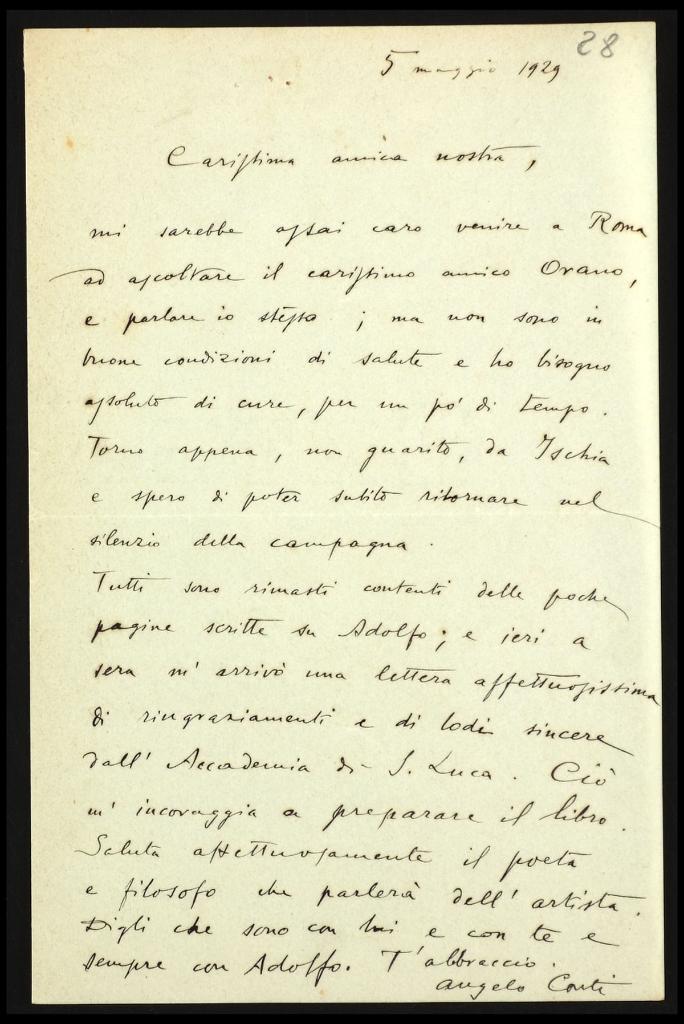 28
5 maggio 1929
Carissima amica nostra,
mi sarebbe assai caro venire a Roma
ad ascoltare il carissimo amico Orano,
e parlare io stesso ; ma non sono in
buone condizioni di salute e ho bisogno
assoluto di cure, per un pò di tempo.
Torno appena, non guarito, da Ischia
e spero di poter subito ritornare nel
silenzio della campagna.
Tutti sono rimasti contenti delle poche
pagine scritte su Adolfo; e ieri a
sera m'arrivò una lettera affettuosissima
di ringraziamenti e di lodi sincere
dall'Accademia di S. Luca. Ciò
m'incoraggia a preparare il libro.
Saluta affettuosamente il poeta
e filosofo che parlerà dell'artista.
Digli che sono con lui e con te e
sempre con Adolfo. T'abbraccio.
Angelo Conti